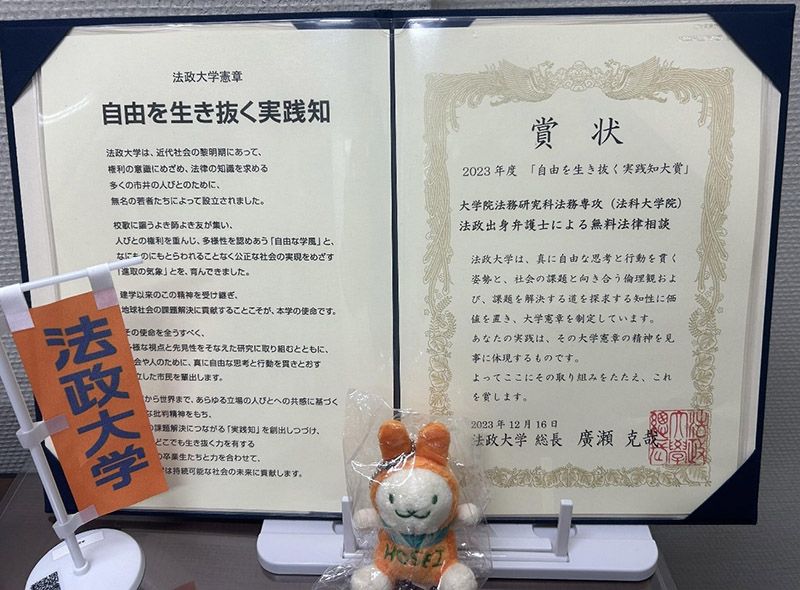 法政大学憲章
自由を生き抜く実践知
法政大学は、近代社会の黎明期にあって、
権利の意識にめざめ、法律の知識を求める
多くの市井の人びとのために、
無名の若者たちによって設立されました。
校歌に謳うよき師よき友が集い、
人びとの権利を重んじ、多様性を認めあう「自由な学風」と、
なにものにもとらわれることなく公正な社会の実現をめざす
「進取の気象」とを、育んできました。
建学以来のこの精神を受け継ぎ、
地球社会の課題解決に貢献することこそが、本学の使命です。
その使命を全うすべく、
な視点と先見性をそなえた研究に取り組むとともに、
会や人のために、真に自由な思考と行動を貫きとおす
立した市民を輩出します。
から世界まで、あらゆる立場の人びとへの共感に基づく
な批判精神をもち、
の課題解決につながる「実践知」を創出しつづけ、
どこでも生き抜く力を有する
の卒業生たちと力を合わせて、
は持続可能な社会の未来に貢献します。
賞状
2023年度 「自由を生き抜く実践知大賞」
大学院法務研究科法務専攻（法科大学院）
法政出身弁護士による無料法律相談
法政大学は、真に自由な思考と行動を貫く
姿勢と、社会の課題と向き合う倫理観およ
び、課題を解決する道を探求する知性に価
値を置き、大学憲章を制定しています。
あなたの実践は、その大学憲章の精神を見
事に体現するものです。
よってここにその取り組みをたたえ、これ
を賞します。
2023年12月16日
法政大学 総長 廣瀬 克哉
法政大学
HOSEI